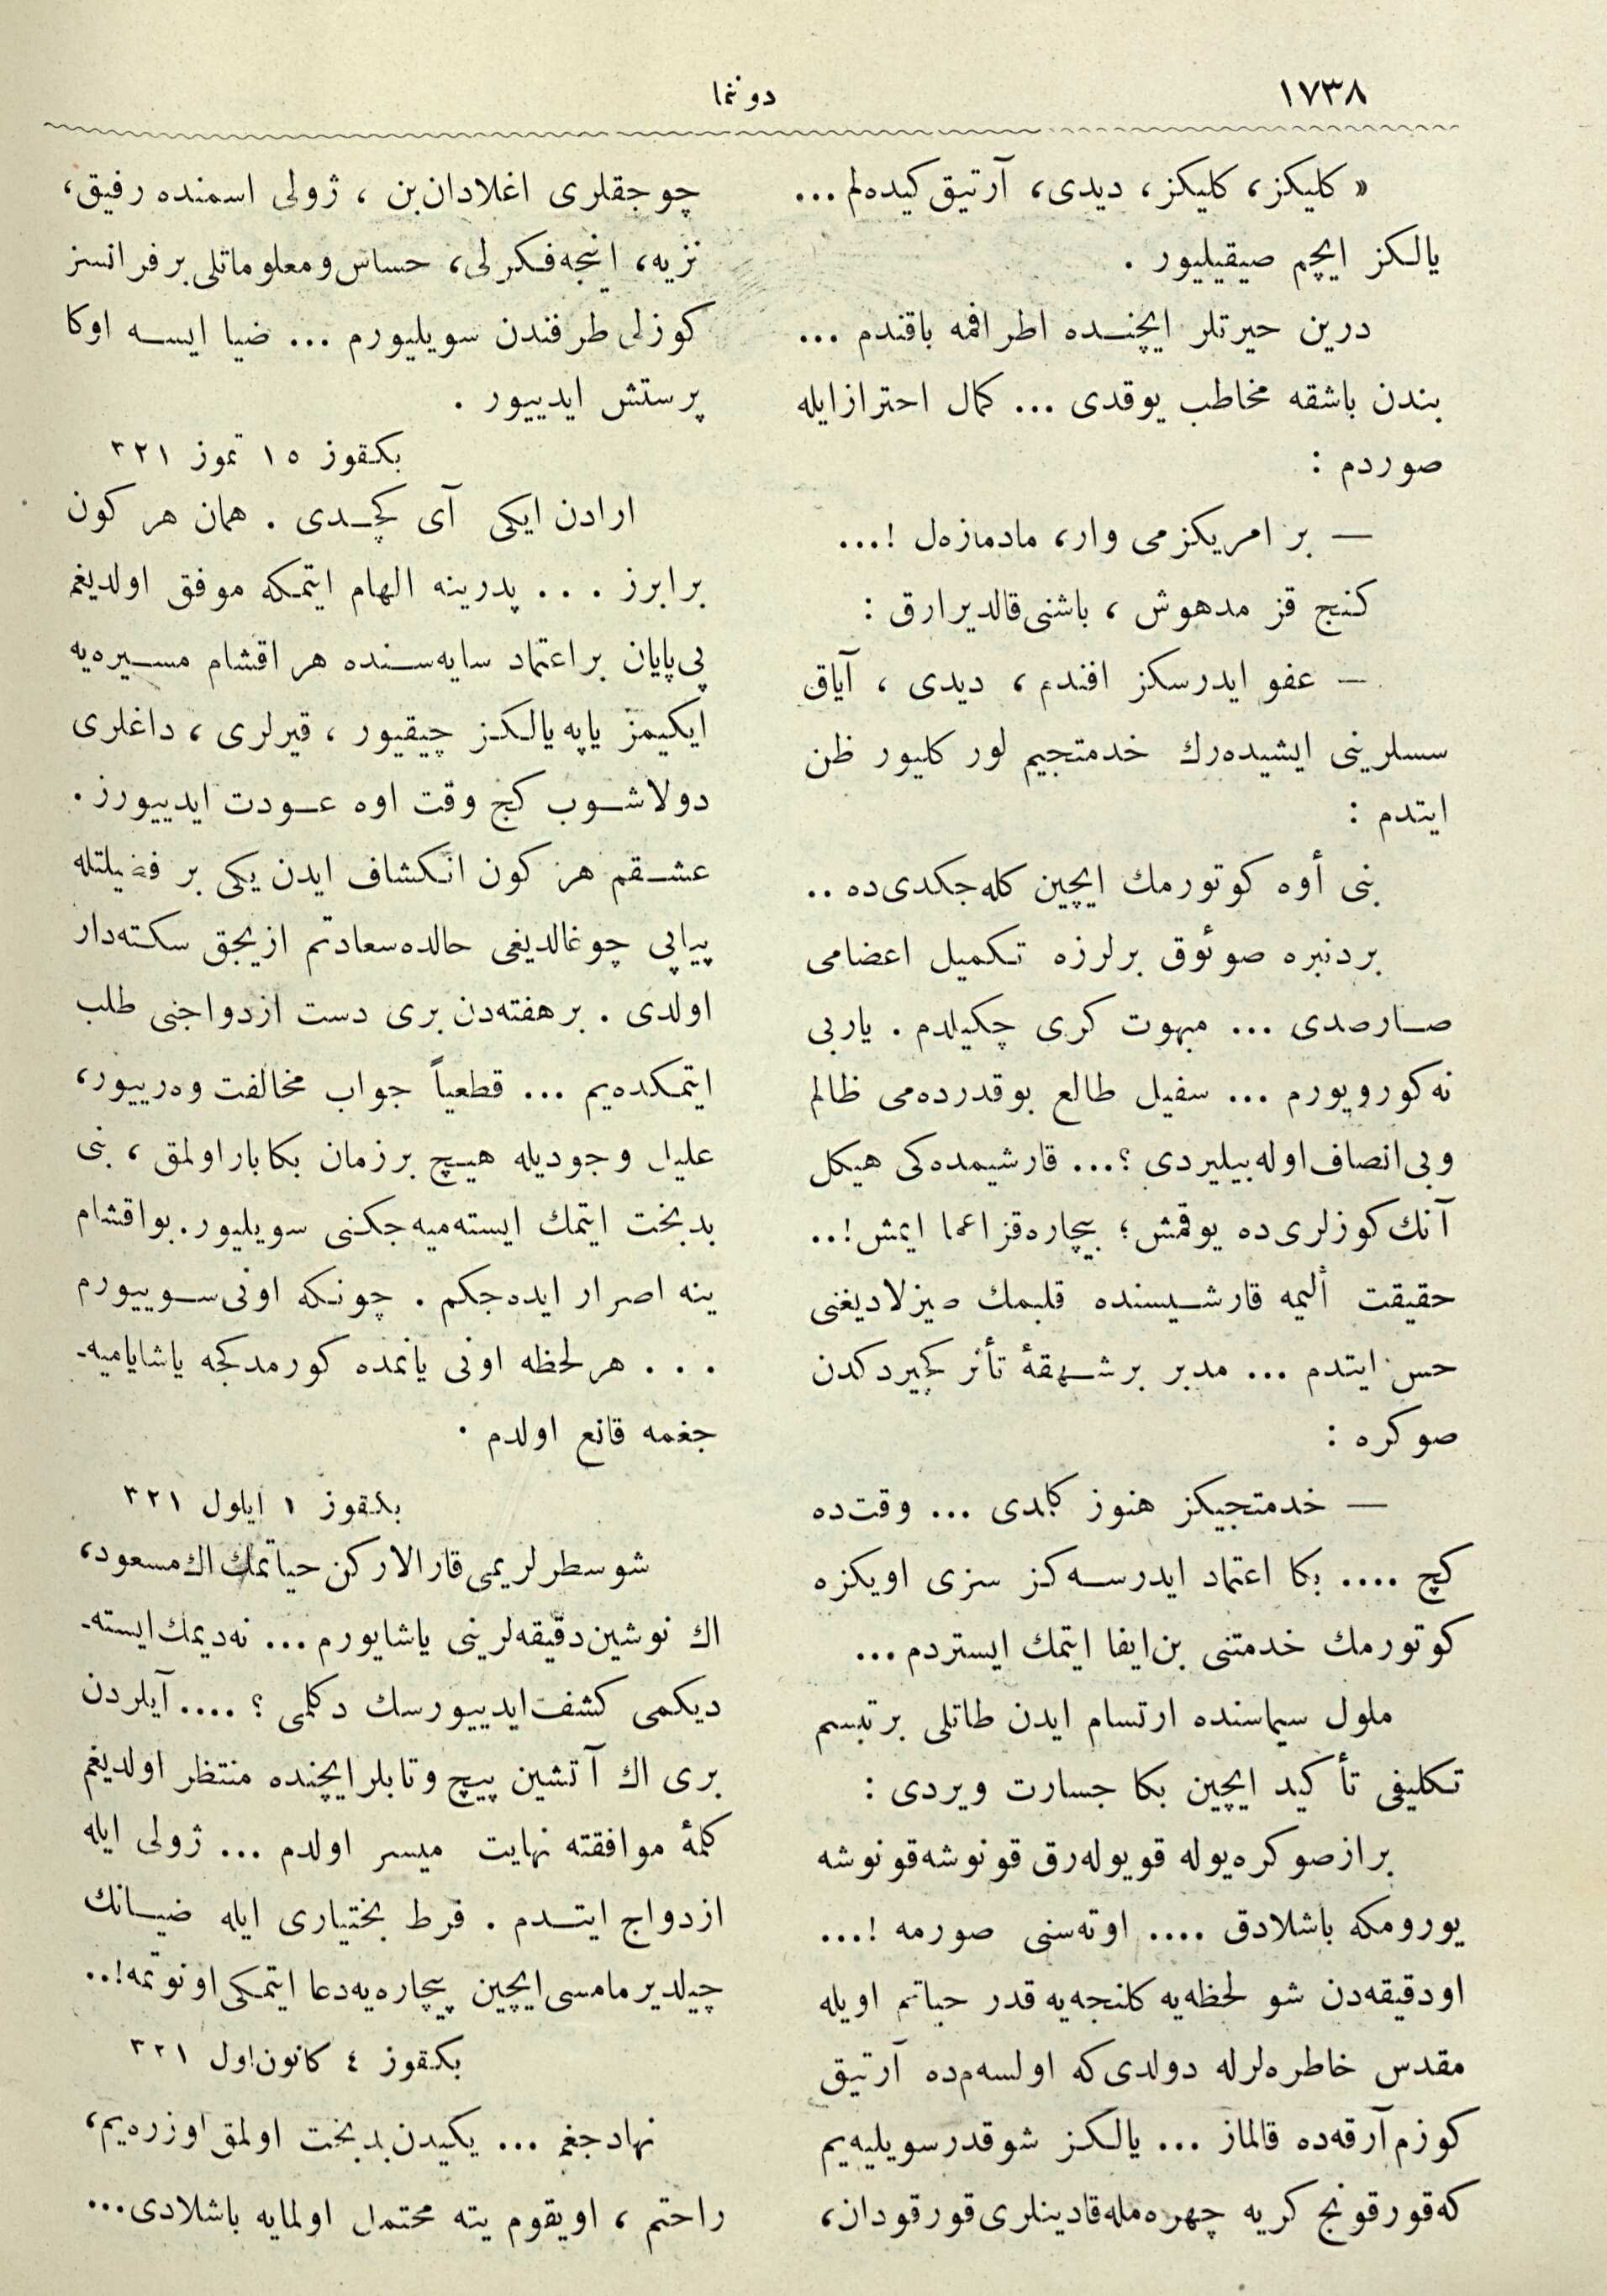 ١٧٣٨
دونما
« كليكز، كليكز، ديدى، آرتيق كيده‌لم ...
يالكز ايچم صيقيليور .
درين حيرتلر ايچنده اطرافمه باقندم ...
بندن باشقه مخاطب يوقدى ... كمال احتراز ايله
صوردم :
— بر امريكز مى وار، مادمازه‌ل !...
كنج قز مدهوش ، باشنى قالديرارق :
— عفو ايدرسكز افندم ، ديدى ، آياق
سسلرينى ايشيده‌رك خدمتجيم لور كليور ظن
ايتدم :
بنى أوه كوتورمك ايچين كله‌جكدى ده ..
بردنبره صوئوق بر لرزه تكميل اعضامى
صارصدى ... مبهوت كرى چكيلدم . ياربى
نه كورويورم ... سفيل طالع بوقدرده‌مى ظالم
وبى انصاف اوله‌بيليردى ؟... قارشيمده‌كى هيكل
آنك كوزلرى ده يوقمش ؛ بيچاره قز اعما ايمش !..
حقيقت أليمه قارشيسنده قلبمك صيزلاديغنى
حس ايتدم ... مدبر بر شهقهٔ تأثر كچيردكدن
صوكره :
— خدمتجيكز هنوز كلمدى ... وقت ده
كچ .... بكا اعتماد ايدرسه‌كز سزى اويكزه
كوتورمك خدمتنى بن ايفا ايتمك ايستردم ...
ملول سيماسنده ارتسام ايدن طاتلى بر تبسم
تكليفى تأكيد ايچين بكا جسارت ويردى :
براز صوكره يوله قويوله‌رق قونوشه قونوشه
يورومكه باشلادق .... اوته‌سنى صورمه !...
اودقيقه‌دن شو لحظه‌يه كلنجه‌يه قدر حياتم اويله
مقدس خاطره‌لرله دولدى كه اولسه‌م ده آرتيق
كوزم آرقه‌ده قالماز ... يالكز شوقدر سويليه‌يم
كه قورقونج كريه چهره‌مله قادينلرى قورقودان،
چوجقلرى اغلادان بن ، ژولى اسمنده رفيق،
نزيه، اينجه فكرلى، حساس ومعلوماتلى بر فرانسز
كوزلى طرفندن سويليورم ... ضيا ايسه اوكا
پرستش ايدييور .
بكقوز ١٥ تموز ٣٢١
ارادن ايكى آى كچدى . همان هر كون
برابرز ... پدرينه الهام ايتمكه موفق اولديغم
بى‌پايان بر اعتماد سايه‌سنده هر اقشام مسيره‌يه
ايكيمز ياپه‌يالكز چيقيور ، قيرلرى ، داغلرى
دولاشوب كج وقت اوه عودت ايدييورز .
عشقم هر كون انكشاف ايدن يكى بر فضيلتله
پياپى چوغالديغى حالده سعادتم ازيجق سكته‌دار
اولدى . بر هفته‌دن برى دست ازدواجنى طلب
ايتمكده‌يم ... قطعياً جواب مخالفت وه‌رييور،
عليل وجوديله هيچ بر زمان بكا بار اولمق ، بنى
بدبخت ايتمك ايسته‌ميه‌جكنى سويليور. بو اقشام
ينه اصرار ايده‌جكم . چونكه اونى سوييورم
... هر لحظه اونى يانمده كورمدكجه ياشايا‌ميه-
جغمه قانع اولدم .
بكقوز ١ ايلول ٣٢١
شو سطرلريمى قارالاركن حياتمك اك مسعود،
اك نوشين دقيقه‌لرينى ياشايورم ... نه ديمك ايسته-
ديكمى كشف ايدييورسك دكلمى ؟ .... آيلردن
برى اك آتشين پيچ وتابلر ايچنده منتظر اولديغم
كلمهٔ موافقته نهايت ميسر اولدم ... ژولى ايله
ازدواج ايتدم . فرط بختيارى ايله ضيانك
چيلديرمامسى ايچين بيچاره‌يه دعا ايتمكى اونوتمه!..
بكقوز ٤ كانون اول ٣٢١
نهادجغم ... يكيدن بدبخت اولمق اوزره‌يم،
راحتم ، اويقوم يته محتمل اولمايه باشلادى...